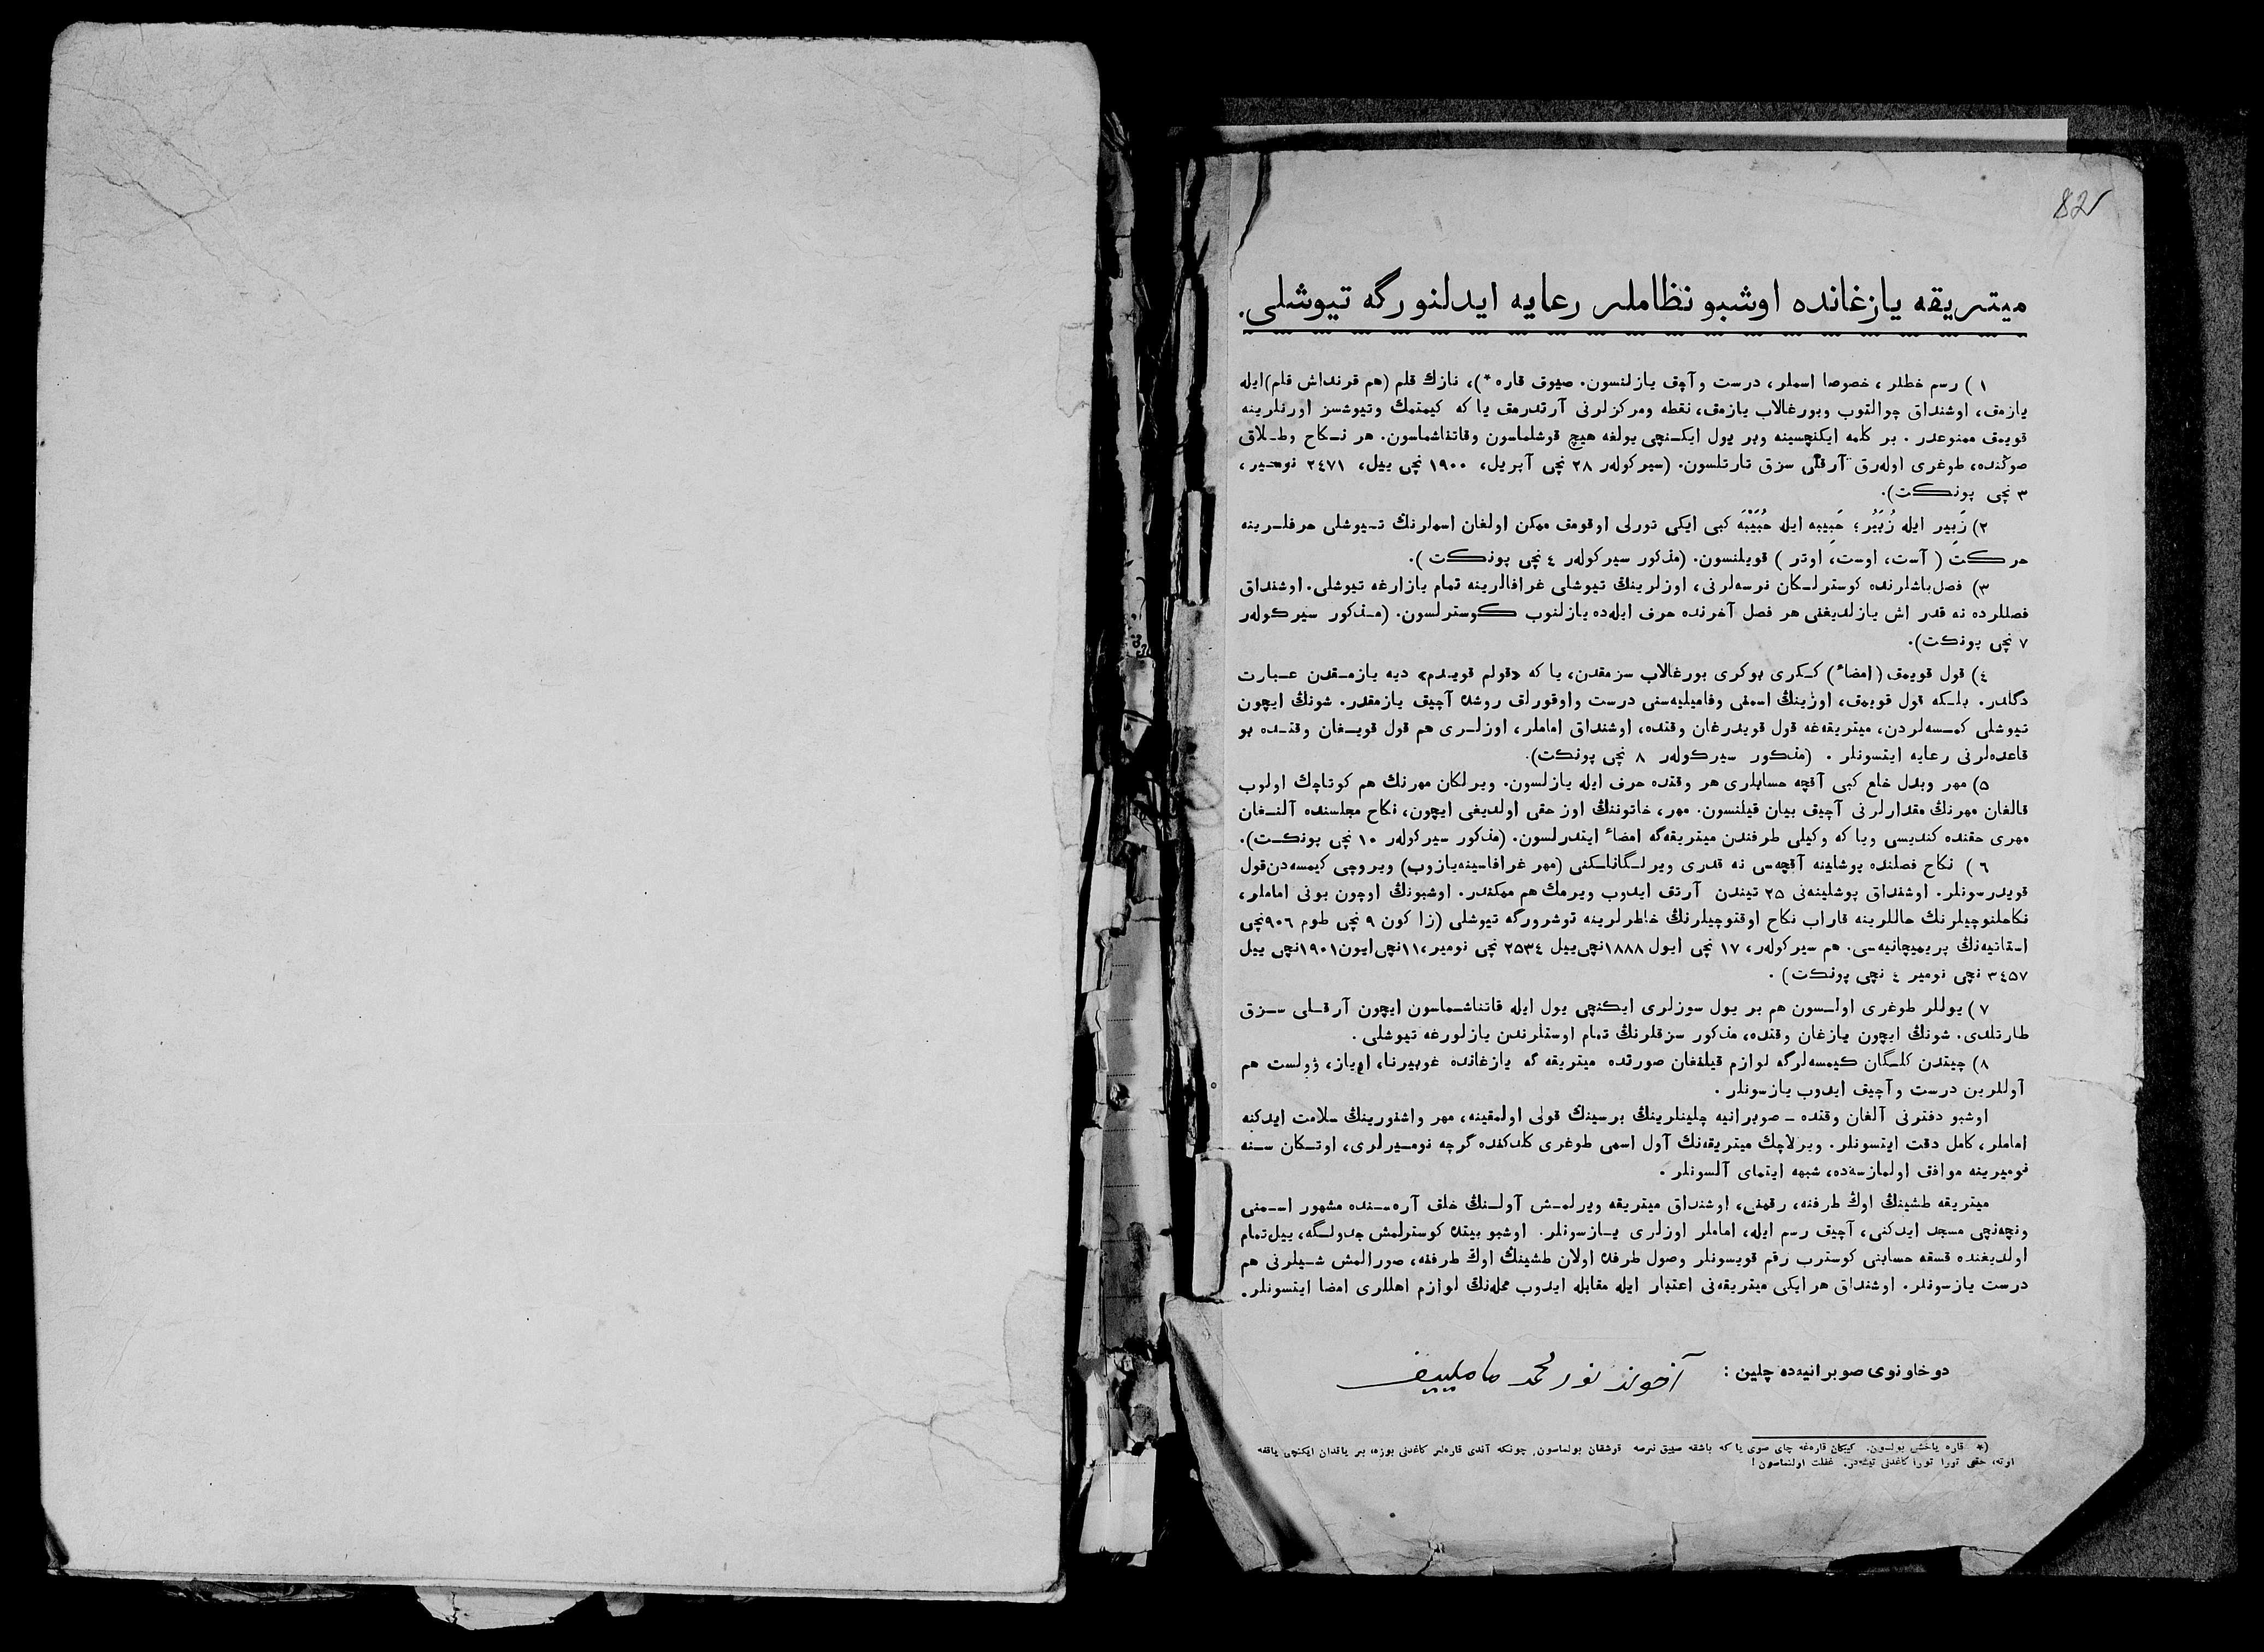 82
ميتريقه يازغانده اوشبو نظاملر رعايه ايدلنورگه تيوشلی.
١) رسم خطلر، خصوصا اسملر، درست وآچق يازلنسون. صيوق قاره*)، نازك قلم (هم قرنداش قلم) ايله
يازمق، اوشنداق چوالتوب وبورغالاب يازمق، نقطه ومركزلرنی آرتدرمق يا كه كيمتمك وتيوشسز اورنلرينه
قويمق ممنوعدر. بر كلمه ايكنچسينه وبر يول ايكنچی يولغه هيچ قوشلماسون وقاتناشماسون. هر نكاح وطلاق
صوڭنده، طوغری اوله‌رق آرقلی سزق تارتلسون. (سيركولەر ٢٨ نچی آپريل، ١٩٠٠ نچی ييل، ٢٤٧١ نومير،
٣ نچی پونكت).
٢) زَبِير ايله زُبَيْر؛ حَبِيبه ايله حُبَيْبَه كبی ايكی تورلی اوقومق ممكن اولغان اسملرنڭ تيوشلی حرفلرينه
حركت (آست، اوست، اوتر) قويلنسون. (مذكور سيركولەر ٤ نچی پونكت).
٣) فصل باشلرنده كوسترلكان نرسه‌لرنی، اوزلرينڭ تيوشلی غرافالرينه تمام يازارغه تيوشلی. اوشنداق
فصللرده نه قدر اش يازلديغنی هر فصل آخرنده حرف ايله‌ده يازلنوب كوسترلسون. (مذكور سيركولەر
٧ نچی پونكت).
٤) قول قويمق (امضاء) ككری بوكری بورغالاب سزمقدن، يا كه «قولم قويدم» ديه يازمقدن عبارت
دگلدر. بلكه قول قويمق، اوزينڭ اسمنی وفاميليه‌سنی درست واوقورلق روشده آچيق يازمقدر. شونڭ ايچون
تيوشلی كمسه‌لردن، ميتريقه‌غه قول قويدرغان وقتده، اوشنداق اماملر، اوزلری هم قول قويغان وقتده بو
قاعده‌لرنی رعايه ايتسونلر. (مذكور سيركولەر ٨ نچی پونكت).
٥) مهر وبدل خلع كبی آقچه حسابلری هر وقتده حرف ايله يازلسون. ويرلكان مهرنڭ هم كوتاچك اولوب
قالغان مهرنڭ مقدارلرنی آچيق بيان قيلنسون. مهر، خاتوننڭ اوز حقی اولديغی ايچون، نكاح مجلسنده آلنغان
مهری حقنده كنديسی ويا كه وكيلی طرفندن ميتريقه‌گه امضاء ايتدرلسون. (مذكور سيركولەر ١٠ نچی پونكت).
٦) نكاح فصلنده پوشلينه آقچه‌سی نه قدری ويرلگانلكنی (مهر غرافاسينه يازوب) ويروچی كيمسه‌دن قول
قويدرسونلر. اوشنداق پوشلينه‌نی ٢٥ تيندن آرتق ايدوب ويرمك هم ممكندر. اوشبونڭ اوچون بونی اماملر،
نكاحلنوچيلرنڭ حاللرينه قاراب نكاح اوقتوچيلرنڭ خاطرلرينه توشرورگه تيوشلی (زاكون ٩ نچی طوم ٩٠٦نچی
استاتيه‌نڭ پريميچانيه‌سی. هم سيركولەر، ١٧ نچی ايول ١٨٨٨نچی ييل ٢٥٣٤ نچی نومير، ١١نچی ايون ١٩٠١نچی ييل
٣٤٥٧ نچی نومير ٤ نچی پونكت).
٧) يوللر طوغری اولسون هم بر يول سوزلری ايكنچی يول ايله قاتناشماسون ايچون آرقلی سزق
طارتلدی. شونڭ ايچون يازغان وقتده، مذكور سزقلرنڭ تمام اوستلرندن يازلورغه تيوشلی.
٨) چيتدن كلگان كيمسه‌لرگه لوازم قيلنغان صورتده ميتريقه گه يازغانده غوبيرنا، اوياز، وولست هم
آوللرين درست وآچيق ايدوب يازسونلر.
اوشبو دفترنی آلغان وقتده – صوبرانيه چلينلرينڭ برسينڭ قولی اولمقينه، مهر واشنورينڭ سلامت ايدكنه
اماملر، كامل دقت ايتسونلر. ويرلاچك ميتريقه‌نڭ آول اسمی طوغری كلدكنده گرچه نوميرلری، اوتكان سنه
نوميرينه موافق اولمازسه‌ده، شبهه ايتمای آلسونلر.
ميتريقه طشينڭ اوڭ طرفنه، رقمنی، اوشنداق ميتريقه ويرلمش آولنڭ خلق آره‌سنده مشهور اسمنی
ونچه‌نچی مسجد ايدكنی، آچيق رسم ايله، اماملر اوزلری يازسونلر. اوشبو بيتده كوسترلمش جدولگه، ييل تمام
اولديغنده قسقه حسابنی كوسترب رقم قويسونلر وصول طرفده اولان طشينڭ اوڭ طرفنه، صورالمش شيلرنی هم
درست يازسونلر. اوشنداق هر ايكی ميتريقه‌نی اعتبار ايله مقابله ايدوب محله‌نڭ لوازم اهللری امضا ايتسونلر.
دوخاونوی صوبرانيه‌ده چلين: آخوند نورمحمد مامليييف
*) قاره ياخشی بولسون. كيبكان قاره‌غه چای صوی يا كه باشقه صييق نرسه قوشقان بولماسون، چونكه آندی قاره‌لر كاغدنی بوزه، بر ياقدان ايكنچی ياققه
اوته، حتی تورا تورا كاغدنی تيشه‌در. غفلت اولنماسون!